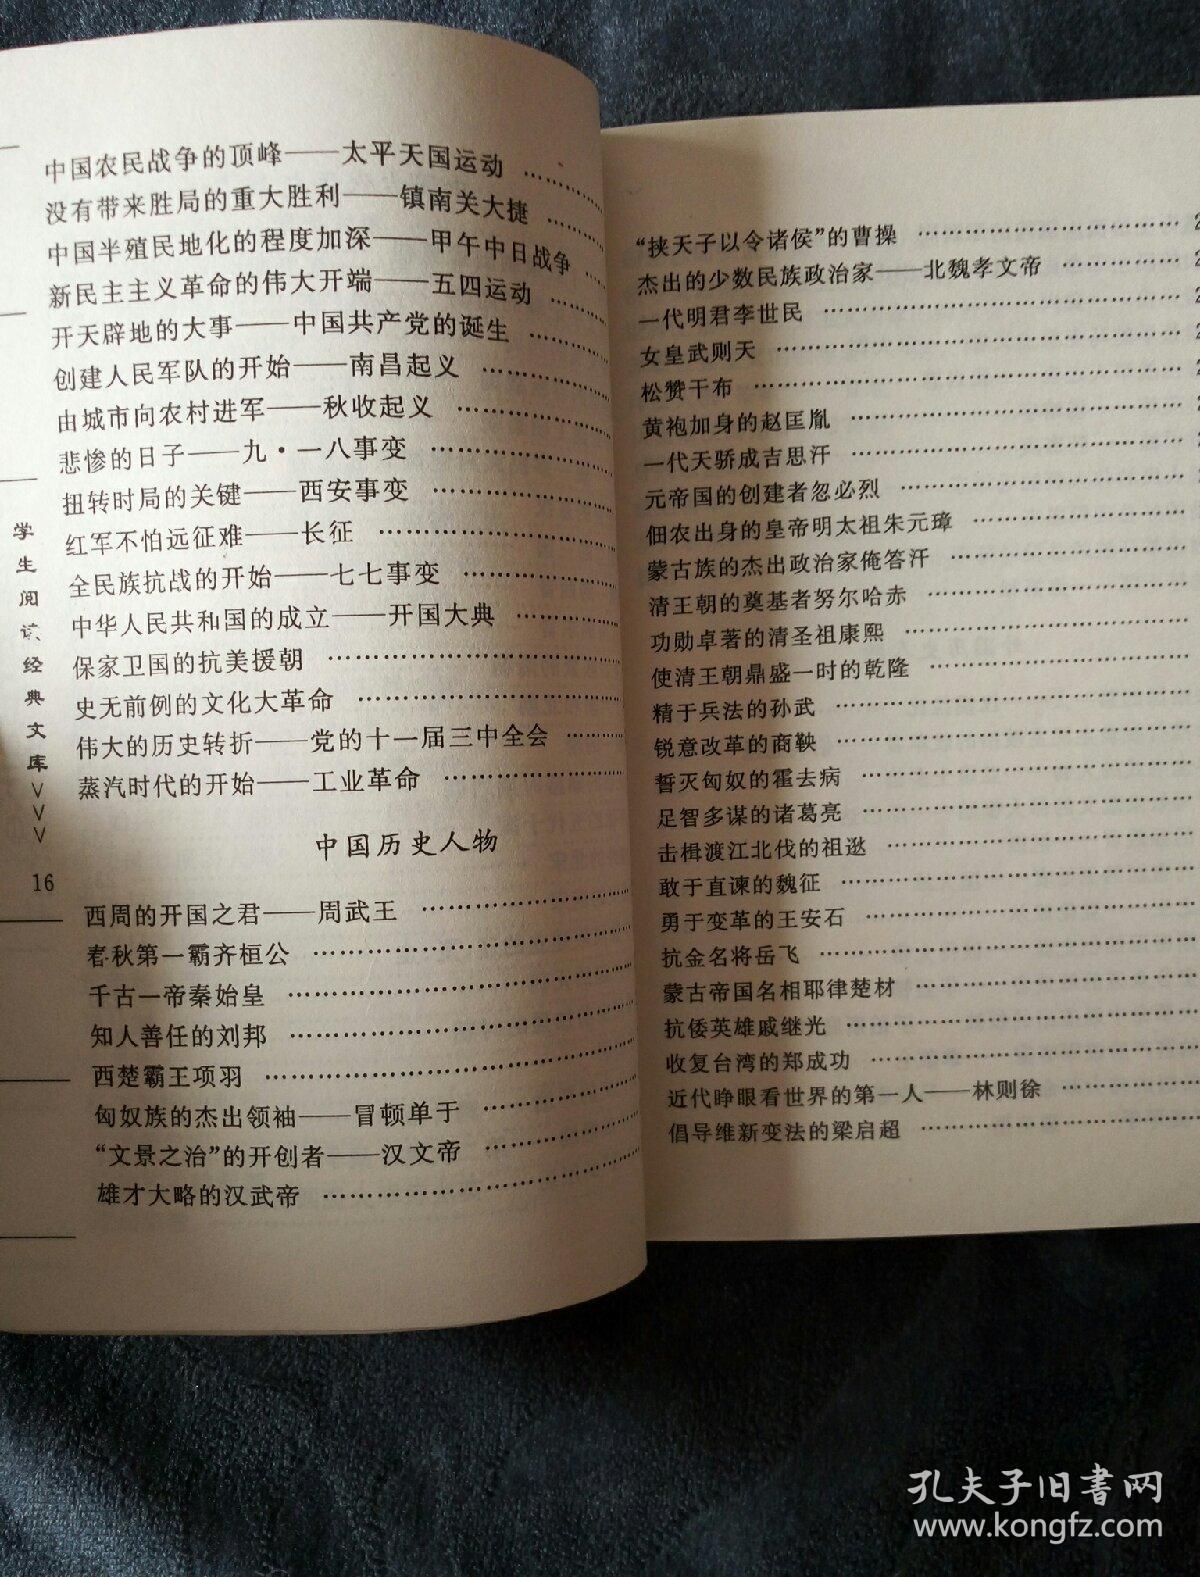 中国农民战争的顶峰——太平天国运动 ……
没有带来胜局的重大胜利——镇南关大捷 ……
中国半殖民地化的程度加深——甲午中日战争 ……
新民主主义革命的伟大开端——五四运动 ……
开天辟地的大事——中国共产党的诞生 ……
创建人民军队的开始——南昌起义 ……
由城市向农村进军——秋收起义 ……
悲惨的日子——九·一八事变 ……
扭转时局的关键——西安事变 ……
红军不怕远征难——长征 ……
全民族抗战的开始——七七事变 ……
中华人民共和国的成立——开国大典 ……
保家卫国的抗美援朝 ……
史无前例的文化大革命 ……
伟大的历史转折——党的十一届三中全会 ……
蒸汽时代的开始——工业革命 ……
中国历史人物
西周的开国之君——周武王 ……
春秋第一霸齐桓公 ……
千古一帝秦始皇 ……
知人善任的刘邦 ……
西楚霸王项羽 ……
匈奴族的杰出领袖——冒顿单于 ……
“文景之治”的开创者——汉文帝 ……
雄才大略的汉武帝 ……
学生阅读经典文库>>>
16
“挟天子以令诸侯”的曹操 ……
杰出的少数民族政治家——北魏孝文帝 ……
一代明君李世民 ……
女皇武则天 ……
松赞干布 ……
黄袍加身的赵匡胤 ……
一代天骄成吉思汗 ……
元帝国的创建者忽必烈 ……
佃农出身的皇帝明太祖朱元璋 ……
蒙古族的杰出政治家俺答汗 ……
清王朝的奠基者努尔哈赤 ……
功勋卓著的清圣祖康熙 ……
使清王朝鼎盛一时的乾隆 ……
精于兵法的孙武 ……
锐意改革的商鞅 ……
誓灭匈奴的霍去病 ……
足智多谋的诸葛亮 ……
击楫渡江北伐的祖逖 ……
敢于直谏的魏征 ……
勇于变革的王安石 ……
抗金名将岳飞 ……
蒙古帝国名相耶律楚材 ……
抗倭英雄戚继光 ……
收复台湾的郑成功 ……
近代睁眼看世界的第一人——林则徐 ……
倡导维新变法的梁启超 ……
孔夫子旧书网
www.kongfz.com